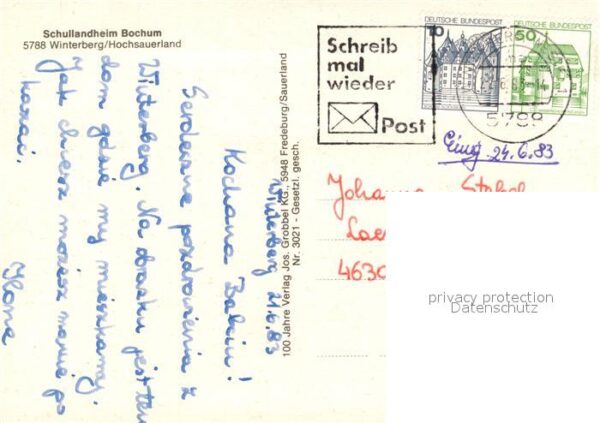 Schullandheim Bochum
5788 Winterberg/Hochsauerland
Schreib
mal
wieder
Post
10
DEUTSCHE BUNDESPOST
50
DEUTSCHE BUNDESPOST
5788
Eing. 24.6.83
Winterberg 21.6.83
Kochana Babciu!
Serdeczne pozdrowienia z
Winterberg. Na obrazku jest ten
dom gdzie my mieszkamy.
Jak chcesz możesz manie po
kazai.
Ilona
100 Jahre Verlag Jos. Grobbel KG., 5948 Fredeburg/Sauerland
Nr. 3021 - Gesetzl. gesch.
Johanna
4630
privacy protection
Datenschutz